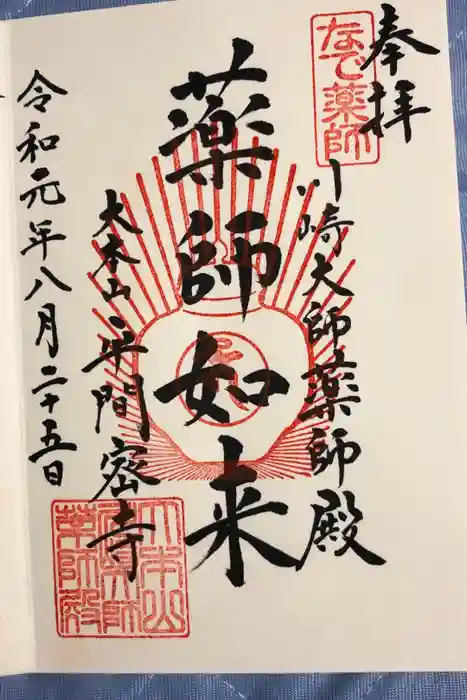 奉拝
なで薬師
川崎大師薬師殿
薬師如来
大本山平間寺
令和元年八月二十五日